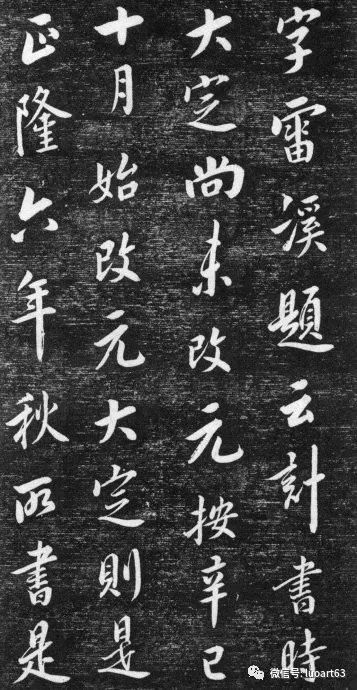 字雷溪題云計書時
大定尚未改元按辛巳
十月始改元大定則是
正隆六年秋所書是
微信号: luoart63